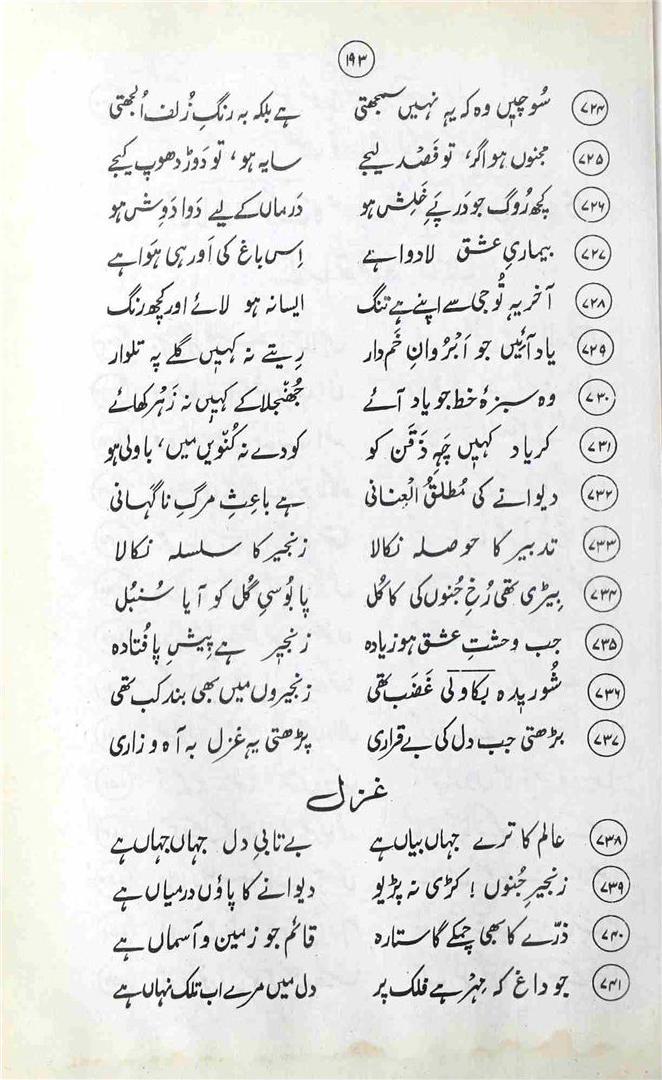 ۱۹۳
۷۲۴ سُوچیں وہ کہ یہ نہیں سمجھتی ہے بلکہ بہ رنگِ زُلف اُلجھتی
۷۲۵ مجنوں ہو اگر، تو فَصْد لیجے سایہ ہو، تو دَوڑ دھوپ کیجے
۷۲۶ کچھ رُوگ جو درپَےِ خَلِش ہو دَرماں کے لیے دَوا دَوِش ہو
۷۲۷ بیماریِ عشق لادوا ہے اِس باغ کی اَور ہی ہَوا ہے
۷۲۸ آخر یہ تُو جی سے اپنے ہے تنگ ایسا نہ ہو لائے اور کچھ رنگ
۷۲۹ یاد آئیں جو اَبْرُوانِ خَم دار رِیتے نہ کہیں گلے پہ تلوار
۷۳۰ وہ سبزۂ خط جو یاد آئے جُھنجلا کے کہیں نہ زَہْر کھائے
۷۳۱ کر یاد کہیں چَہِ ذَقَن کو کود دے نہ کُنْویں میں، باولی ہو
۷۳۲ دیوانے کی مُطلقُ الْعِنانی ہے باعثِ مرگِ ناگہانی
۷۳۳ تدبیر کا حوصلہ نکالا زنجیر کا سلسلہ نکالا
۷۳۴ بِیڑی تھی رُخِ جُنوں کی کاکُل پا بُوسیِ گُل کو آیا سُنبُل
۷۳۵ جب وحشتِ عشق ہو زیادہ زنجیر ہے پیشِ پا فُتادہ
۷۳۶ شُوریدہ بکاولی غَضَب تھی زنجیروں میں بھی بند کب تھی
۷۳۷ بڑھتی جب دل کی بے قراری پڑھتی یہ غزل بہ آہ و زاری
غزل
۷۳۸ عالم کا ترے جہاں بیاں ہے بے تابیِ دل جہاں جہاں ہے
۷۳۹ زنجیرِ جُنوں! کڑی نہ پڑیو دیوانے کا پاؤں درمیاں ہے
۷۴۰ ذرّے کا بھی چمکے گا ستارہ قائم جو زمین و آسماں ہے
۷۴۱ جو داغ کہ مِہْر ہے فلک پر دل میں مرے اب تلک نہاں ہے